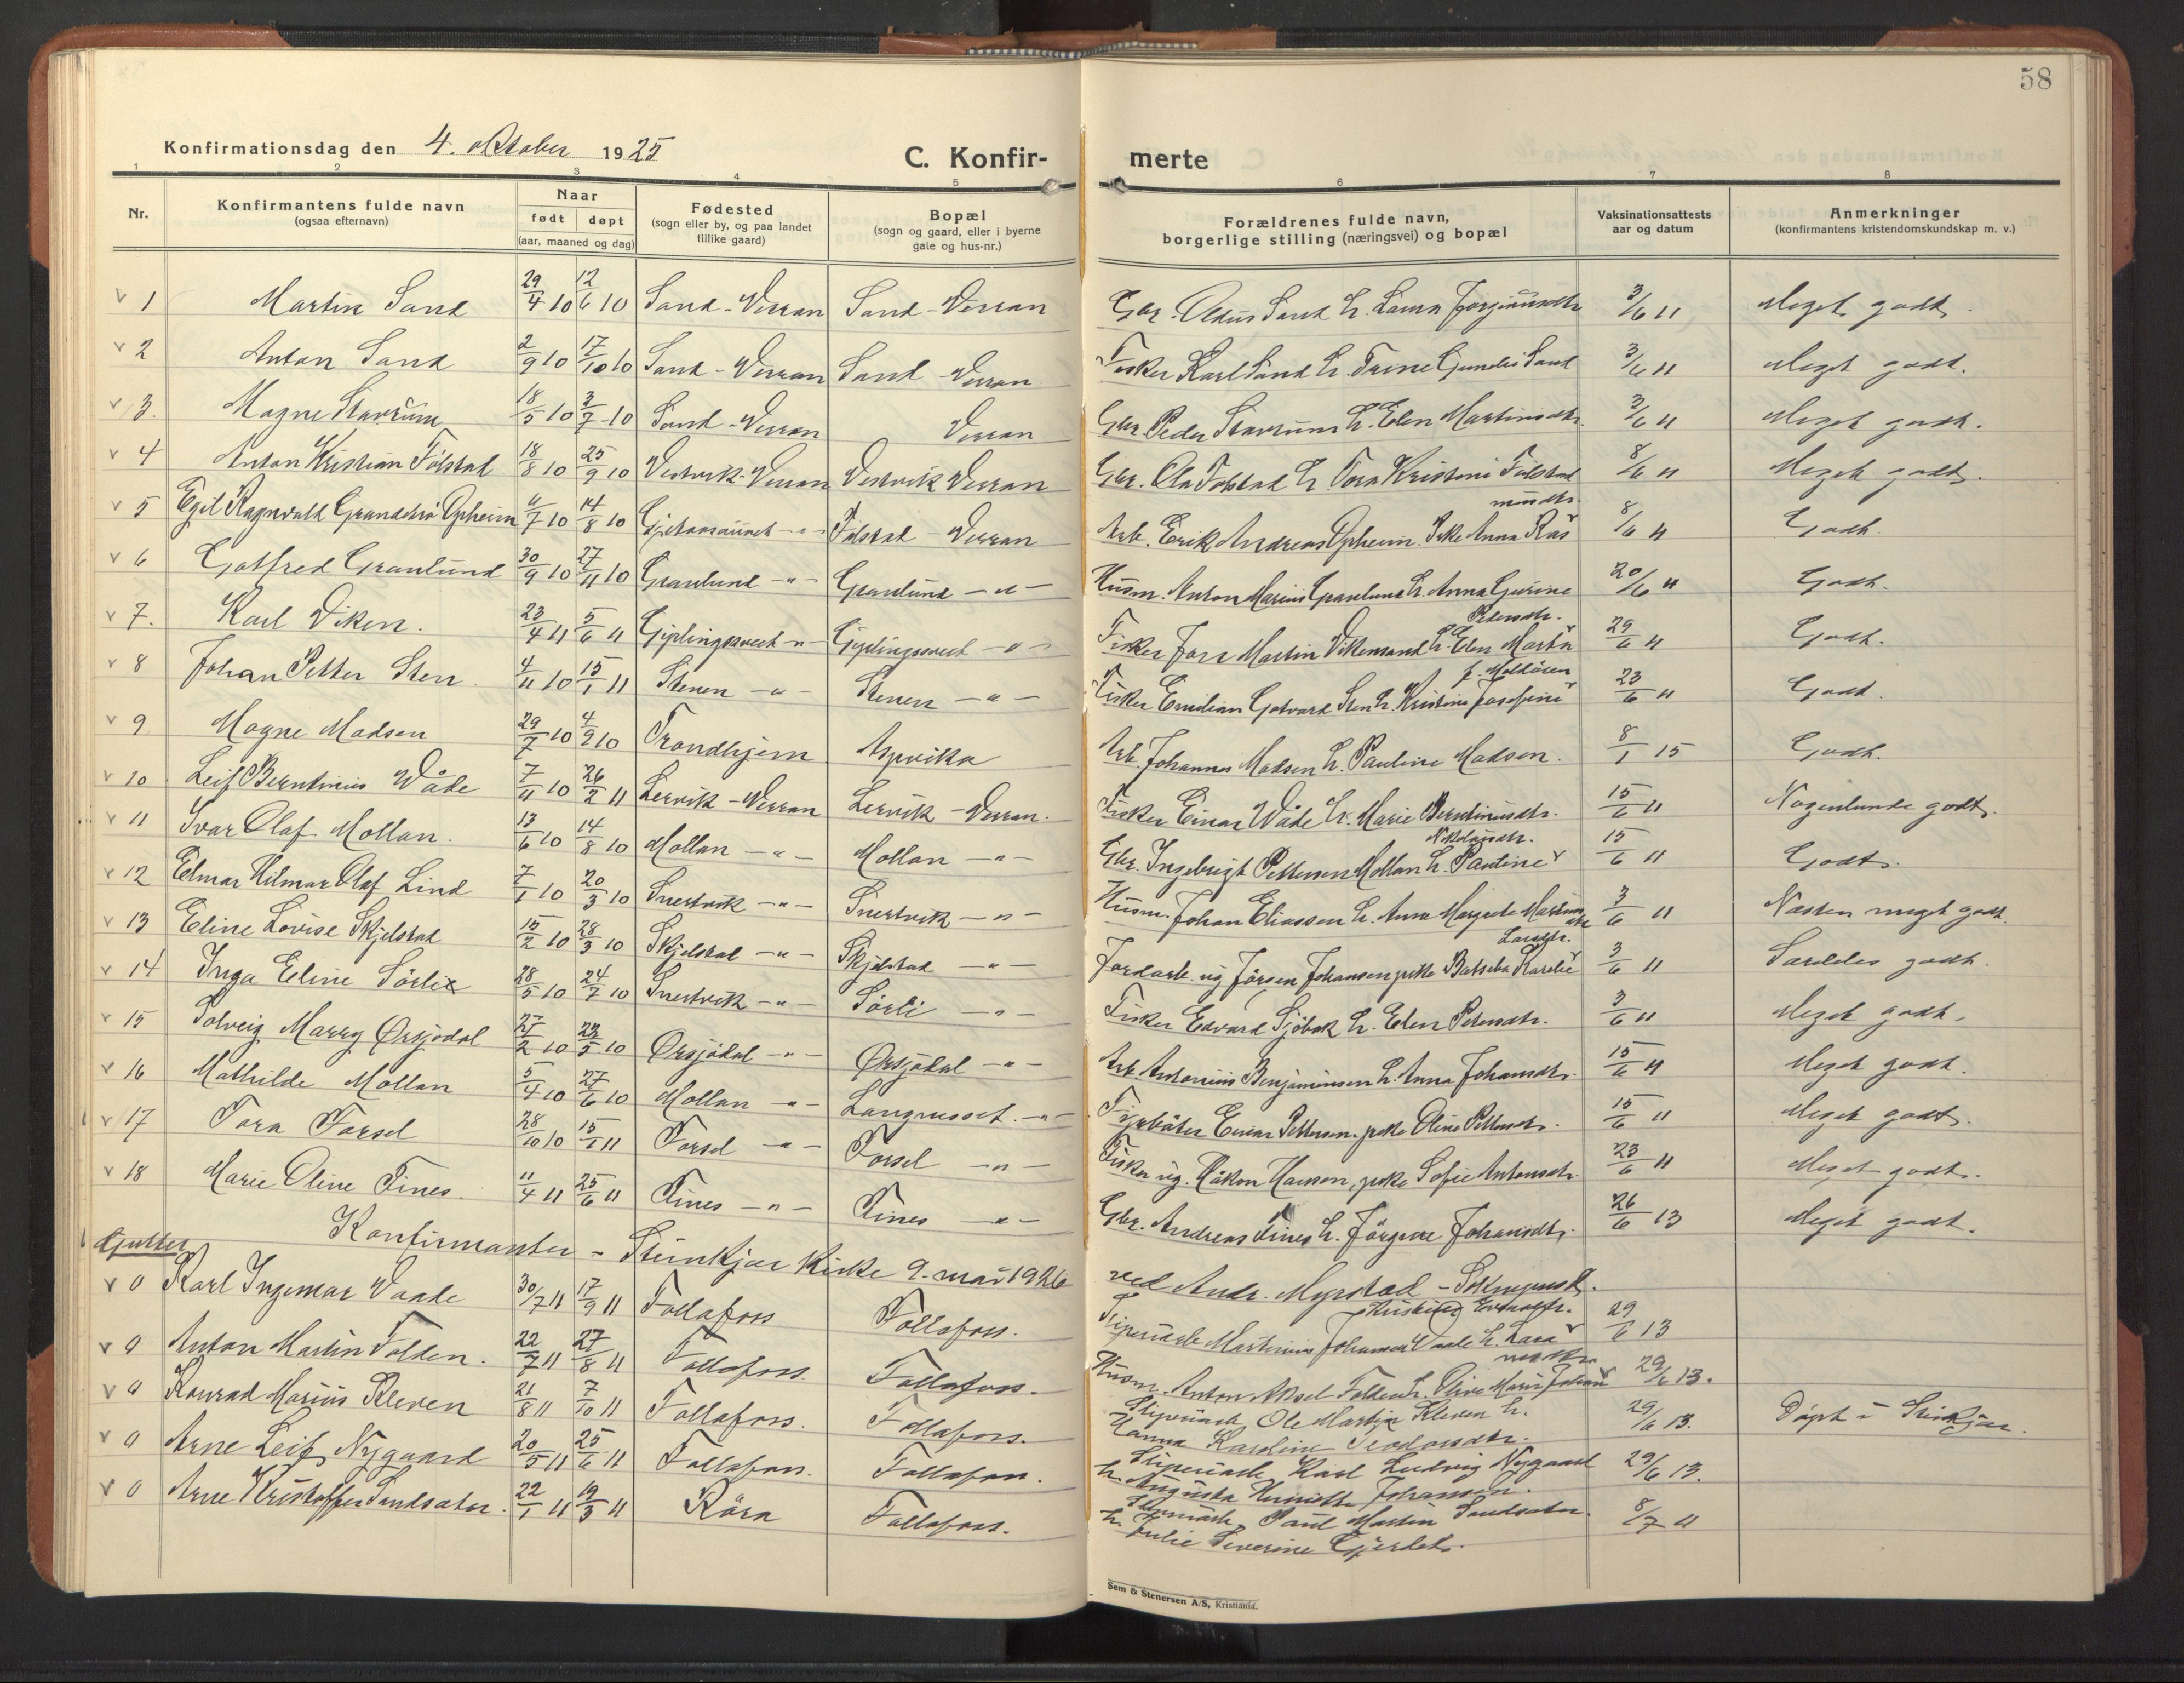 58
Konfirmationsdag den 4. oktober 1925
C. Konfir- merte
1 2 3 4 5 6 7 8
Nr.
Konfirmantens fulde navn
(ogsaa efternavn)
Naar
født døpt
(aar, maaned og dag)
Fødested
(sogn eller by, og paa landet
tillike gaard)
Bopæl
(sogn og gaard, eller i byerne
gate og hus-nr.)
Forældrenes fulde navn,
borgerlige stilling (næringsvei) og bopæl
Vaksinationsattests
aar og datum
Anmerkninger
(konfirmantens kristendomskundskap m. v.)
v 1 Martin Sand 29/4 10 12/6 10 Sand - Verran Sand - Verran Gbr. Aldus Sand h. Laura Jørginusdtr 3/6 11 Meget godt.
v 2 Anton Sand 2/9 10 17/10 10 Sand - Verran Sand - Verran Fisker Karl Sand h. Trine Gundei Sand 3/6 11 Meget godt.
v 3. Magne Stavrum 18/5 10 3/7 10 Sand - Verran Verran Gbr. Peder Stavrum h. Elen Martinsdtr. 3/6 11 Meget godt.
v 4 Anton Kristian Folstad 18/8 10 25/9 10 Vestvik - Verran Vestvik Verran Gbr. Ola Folstad h. Tora Kristine Folstad 8/6 11 Meget godt.
v 5 Egil Ragnvald Grandehø Opheim 11/7 10 14/8 10 - " - Folstad - Verran Arb. Erik Andreas Opheim. Pike Anna Ras musdtr. 8/6 11 Godt.
v 6 Gotfred Granlund 30/9 10 27/11 10 Granlund - " - Granlund - " - Husm. Anton Marius Granlund h. Anna Gurine Petersdtr. 20/6 11 Godt.
v 7. Karl Viken. 23/4 11 5/6 11 Giplingsvect - " - Giplingsvect - " - Fisker Jors Martin Vikensand h. Elen Marta f. Moldøien 29/6 11 Godt.
v 8 Johan Petter Sten 4/11 10 15/1 11 Stenen - " - Stenen - " - Fisker Emilian Gotvard Sten h. Kristine Josefine 23/6 11 Godt.
v 9 Magne Madsen 29/7 10 4/9 10 Trondhjem Aspvika Arb. Johannes Madsen h. Pauline Madsen. 8/1 15 Godt.
v 10 Leif Berntinius Våde 7/11 10 26/2 11 Lervik - Verran Lervik - Verran. Fisker Einar Våde h. Marie Berntinusdtr. 15/6 11 Nogenlunde godt.
v 11 Ivar Olaf Mollan. 13/6 10 14/8 10 Mollan - " - Mollan - " - Gbr. Ingebrigt Pettersen Mollan h. Pauline Nikolaisdtr. 15/6 11 Godt.
v 12 Elmar Hilmar Olaf Lind 7/1 10 20/3 10 Snertvik - " - Snertvik - " - Husm. Johan Eliassen h. Anna Margrete Martinusdtr 3/6 11 Næsten meget godt.
v 13 Eline Lovise Skjelstad 15/2 10 28/3 10 Skjelstad - " - Skjelstad - " - Jordarb. ug Jörgen Johansen pike Batseba Karelie Larsdtr. 3/6 11 Særdeles godt.
v 14 Inga Eline Sörli 28/5 10 24/7 10 Snertvik - " - Sörli - " - Fisker Edvard Sjöbak h. Elen Petersdtr. 3/6 11 Meget godt.
v 15 Solveig Marry Ørsjødal 27/2 10 22/5 10 Ørsjødal - " - Ørsjødal - " - Arb. Antonius Benjaminsen h. Anna Johansdtr. 15/6 11 Meget godt.
v 16 Mathilde Mollan 5/4 10 27/6 10 Mollan - " - Langnesset. - " - Fyrbøter Einar Pettersen. pike Oline Pettersdtr. 15/6 11 Meget godt.
v 17 Tora Forsel 28/10 10 15/1 11 Forsel - " - Forsel - " - Fisker ug. Håkon Hansen, pike Sofie Antonsdtr. 23/6 11 Meget godt.
v 18 Marie Oline Tines. 11/4 11 25/6 11 Tines - " - Tines - " - Gbr. Andreas Tines h. Jörgine Johansdtr. 26/6 13 Meget godt.
Gutter Konfirmanter - Steinkjær kirke 9. mai 1926 ved Andr. Myrstad - Sokneprest.
v 0 Karl Ingemar Vaade 30/7 11 17/9 11 Follafoss Follafoss. Sliperiarb Martinus Johansen Vaade h. Lara Kristine 29/6 13
v 0 Anton Martin Folden. 22/7 11 27/8 11 Follafoss. Follafoss. Husm. Anton Aksel Folden h. Oline Marie Johan 29/6 13.
v 0 Konrad Marius Kleven 21/8 11 7/10 11 Follafoss. Follafoss. Sliperiarb Ole Martin Kleven h. Hanna Karoline Teodorsdtr. 29/6 13. Døpt i Steinkjær.
v 0 Arne Leif Nygaard 20/5 11 25/6 11 Follafoss. Follafoss. Sliperiarb Karl Ludvig Nygaard h. Augusta Henriette Johansen. 29/6 13.
v 0 Arne Kristoffer Sandsater. 22/1 11 19/3 11 Röra Follafoss. Paul Martin Sandsater. h. Julie Severine Gjerdet. 8/7 11
Sem & Stenersen A/S, Kristiania.